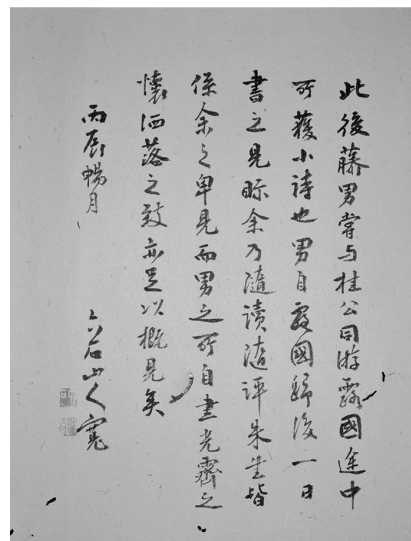 此後藤男嘗与桂公同游露國途中
所獲小詩也男自露國歸後一日
書之見眎余乃隨讀隨評朱皆
係余之卑見而男之所自書光霽之
懷洒落之致亦足以概見矣
丙辰暢月
六石山人寬